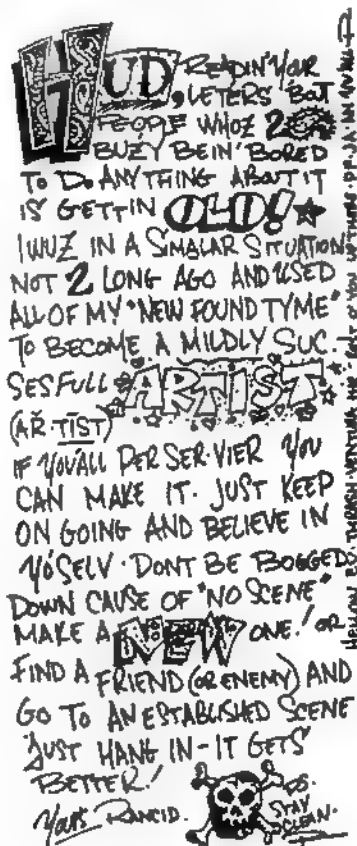 HUD, READIN' YOUR
LETERS 'BOT
PEOPLE WHOZ 2
BUZY BEIN' BORED
TO DO ANYTHING ABOUT IT
IS GETTIN OLD!
I WUZ IN A SIMALAR SITUATION
NOT 2 LONG AGO AND USED
ALL OF MY "NEW FOUND TYME"
TO BECOME A MILDLY SUC.
SESFULL ARTIST
(AR·TIST)
IF YOU'ALL PER SER·VIER YOU
CAN MAKE IT. JUST KEEP
ON GOING AND BELIEVE IN
YO'SELV. DONT BE BOGGED
DOWN CAUSE OF "NO SCENE"
MAKE A NEW ONE! OR
FIND A FRIEND (OR ENEMY) AND
GO TO AN ESTABLISHED SCENE
JUST HANG IN - IT GETS
BETTER!
Yours RANCID.
PS.
STAY
CLEAN.
THRASH